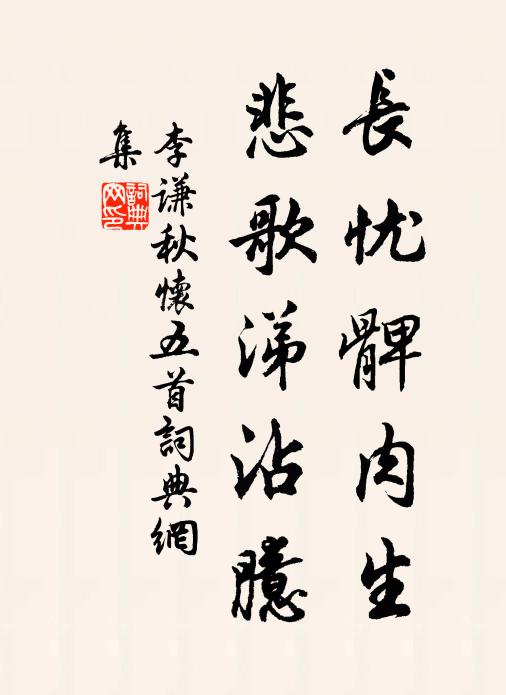 長忧髀肉生
悲歌涕沾臆
李谦秋懷五首詞典網
集
詞典网印